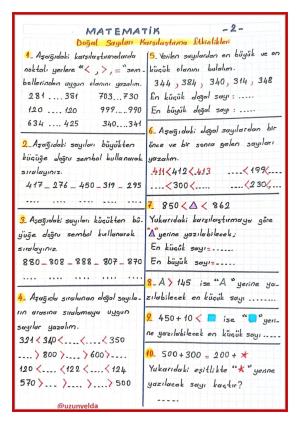 MATEMATİK -2-
Doğal Sayıları Karşılaştırma Etkinlikleri
1- Aşağıdaki karşılaştırmalarda
noktalı yerlere " < , > , = " sem-
bellerinden uygun olanını yazalım.
281 .... 381 703...730
120 .... 120 999...990
634 .... 425 340....341
2- Aşağıdaki sayıları büyükten
küçüğe doğru sembol kullanarak
sıralayınız.
417 - 276 - 450 - 319 - 295
.... .... .... .... ....
3. Aşağıdaki sayıları küçükten bü-
yüğe doğru sembol kullanarak
sıralayınız.
880 - 808 - 888 - 819 - 881
.... .... .... .... ....
4. Aşağıda sıralanan doğal sayıla-
rın arasına sıralamaya uygun
sayılar yazalım.
321 < 340 < .... < .... < 350
.... > 800 > .... > 600 > ....
120 < .... < .... < .... < 124
570 > .... > .... > .... > 530
@uzunvelda
5. Verilen sayılardan en büyük ve en
küçük olanını bulalım.
344, 384, 340, 314, 348
En küçük doğal sayı : .....
En büyük doğal sayı : .....
6. Aşağıdaki doğal sayılardan bir
önce ve bir sonra gelen sayıları
yazalım.
411 < 412 < 413 ....< 199 <....
.... < 300 < .... .... < 230 < ....
7. 850 < △ < 862
Yukarıdaki karşılaştırmaya göre
"△" yerine yazılabilecek;
En küçük sayı : ......
En büyük sayı : ......
8- A > 145 ise "A" yerine ya-
zılabilecek en küçük sayı .......
9. 450 + 10 < ■ ise "■" yeri-
ne yazılabilecek en küçük sayı .....
10. 500 + 300 = 200 + *
Yukarıdaki eşitlikte "*" yerine
yazılacak sayı kaçtır?
.....